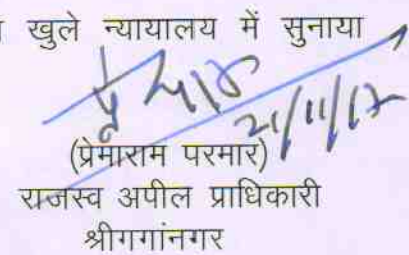 खुले न्यायालय में सुनाया
21/11/17
(प्रेमाराम परमार)
राजस्व अपील प्राधिकारी
श्रीगगांनगर